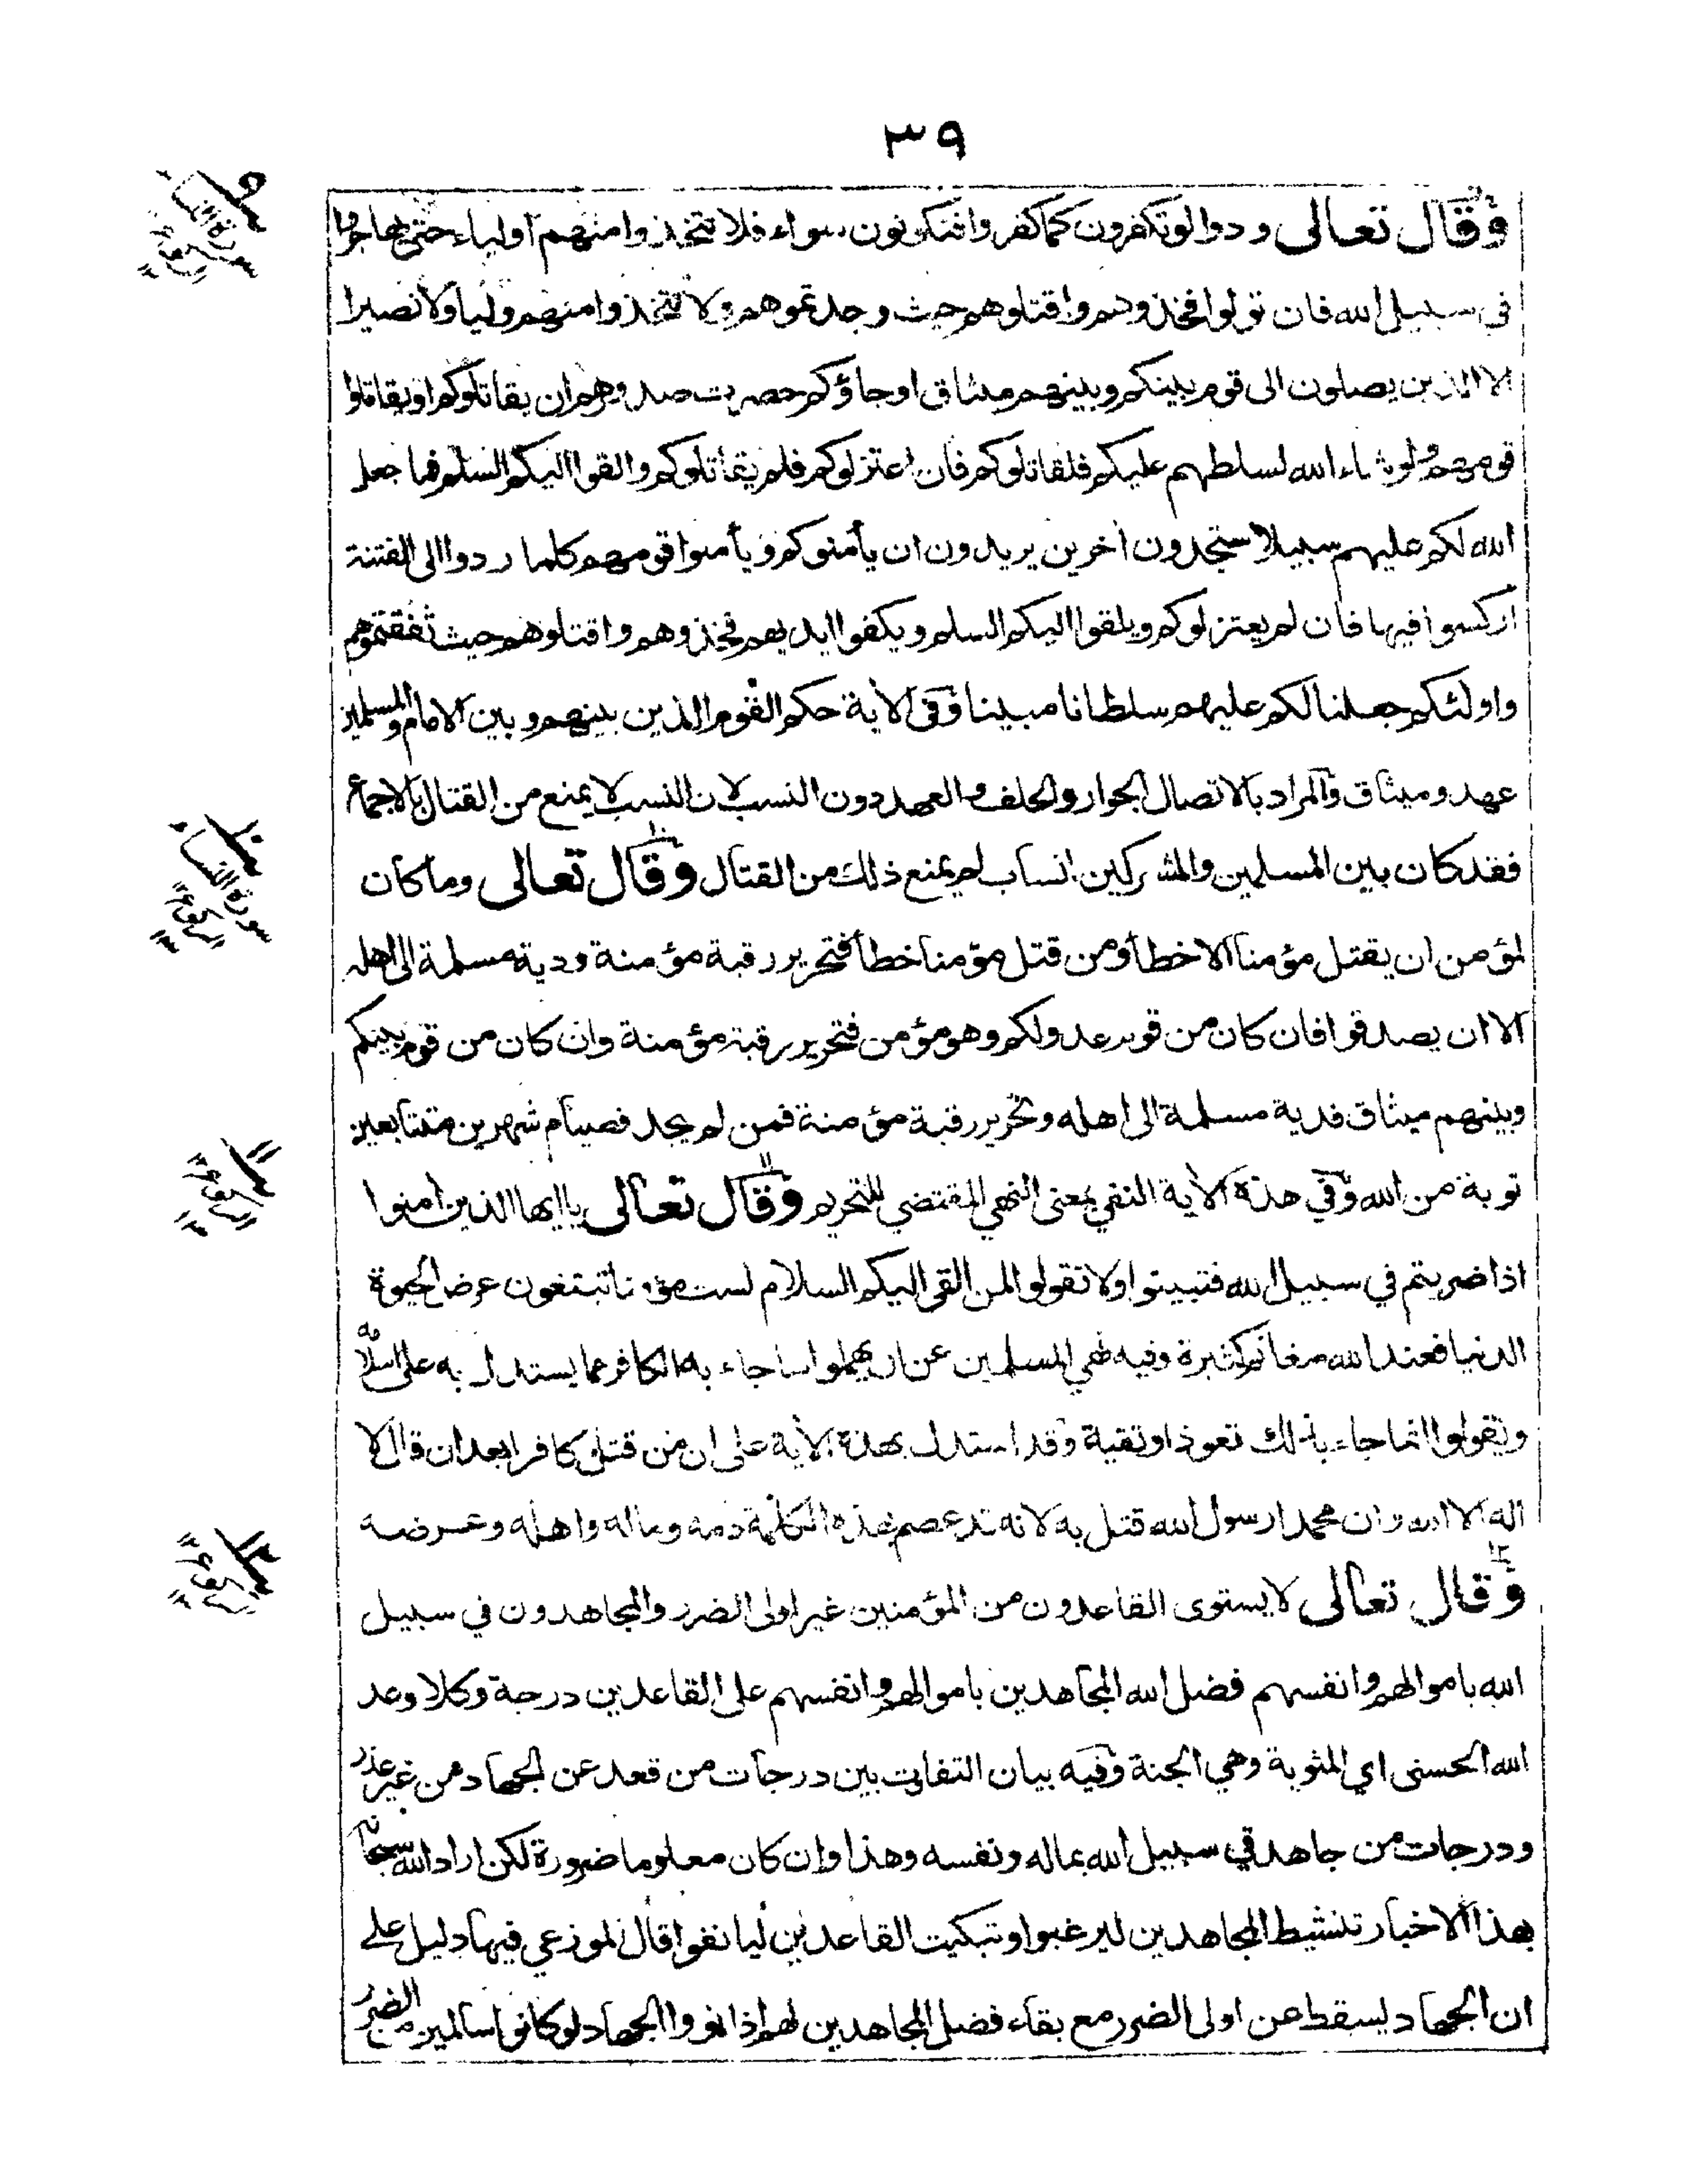 ٣٩
وقال تعالى ودوا لوتكفرون كما كفروا فتكونون سواء فلا تتخذوا منهم اولياء حتى يهاجروا
في سبيل الله فان تولوا فخذوهم واقتلوهم حيث وجدتموهم ولا تتخذوا منهم وليا ولا نصيرا
الا الذين يصلون الى قوم بينكم وبينهم ميثاق او جاؤكم حصرت صدورهم ان يقاتلوكم او يقاتلوا
قومهم ولو شاء الله لسلطهم عليكم فلقاتلوكم فان اعتزلوكم فلم يقاتلوكم والقوا اليكم السلم فما جعل
الله لكم عليهم سبيلا ستجدون اخرين يريدون ان يأمنوكم ويأمنوا قومهم كلما ردوا الى الفتنة
اركسوا فيها فان لم يعتزلوكم ويلقوا اليكم السلم ويكفوا ايديهم فخذوهم واقتلوهم حيث ثقفتموهم
واولئكم جعلنا لكم عليهم سلطانا مبينا وفي الأية حكم القوم الذين بينهم وبين الامام والمسلمين
عهد وميثاق والمراد بالاتصال الجوار والحلف والعهد دون النسب لان النسب لا يمنع من القتال بالاجماع
فقد كان بين المسلمين والمشركين انساب لم يمنع ذلك من القتال وقال تعالى وما كان
لمؤمن ان يقتل مؤمنا الا خطأ ومن قتل مؤمنا خطأ فتحرير رقبة مؤمنة ودية مسلمة الى اهله
الا ان يصدقوا فان كان من قوم عدو لكم وهو مؤمن فتحرير رقبة مؤمنة وان كان من قوم بينكم
وبينهم ميثاق فدية مسلمة الى اهله وتحرير رقبة مؤمنة فمن لم يجد فصيام شهرين متتابعين
توبة من الله وفي هذه الأية النفي بمعنى النهي المقتضي للتحريم وقال تعالى يا ايها الذين امنوا
اذا ضربتم في سبيل الله فتبينوا ولا تقولوا لمن القى اليكم السلام لست مؤمنا تبتغون عرض الحيوة
الدنيا فعند الله مغانم كثيرة وفيه نهي المسلمين عن ان يهملوا ما جاء به الكافر مما يستدل به على اسلامه
ويقولوا انما جاء بذلك تعوذا وتقية وقد استدل بهذه الأية على ان من قتل كافرا بعد ان قال لا
اله الا الله وان محمدا رسول الله قتل به لانه قد عصم بهذه الكلمة دمه وماله واهله وعرضه
وقال تعالى لا يستوى القاعدون من المؤمنين غير اولى الضرر والمجاهدون في سبيل
الله باموالهم وانفسهم فضل الله المجاهدين باموالهم وانفسهم على القاعدين درجة وكلا وعد
الله الحسنى اي المثوبة وهي الجنة وفيه بيان التفاوت بين درجات من قعد عن الجهاد من غير عذر
ودرجات من جاهد في سبيل الله بماله ونفسه وهذا وان كان معلوما ضرورة لكن اراد الله سبحانه
بهذا الاخبار تنشيط المجاهدين ليرغبوا وتبكيت القاعدين ليانفوا قال الموزعي فيها دليل على
ان الجهاد ليسقط عن اولى الضرر مع بقاء فضل المجاهدين لهم اذا نووا الجهاد لو كانوا سالمين من الضرر
٩
سورة النساء
١٠
سورة النساء
١١
١٢